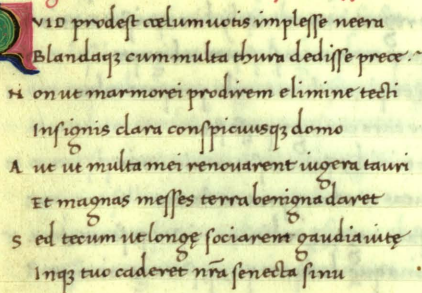 QVID prodest cœlum uotis implesse neera
Blandaqȝ cum multa thura dedisse prece.
Non ut marmorei prodirem e limine tecti
Insignis clara conspicuusqȝ domo
Aut ut multa mei renouarent iugera tauri
Et magnas messes terra benigna daret
Sed tecum ut longę sociarent gaudia uitę
Inqȝ tuo caderet nr̃a senecta sinu